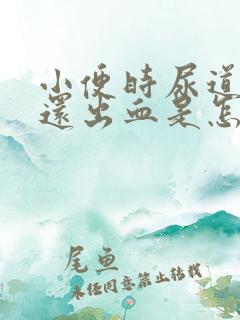 小便時尿道
還出血是怎
尾鱼
未经同意禁止转载